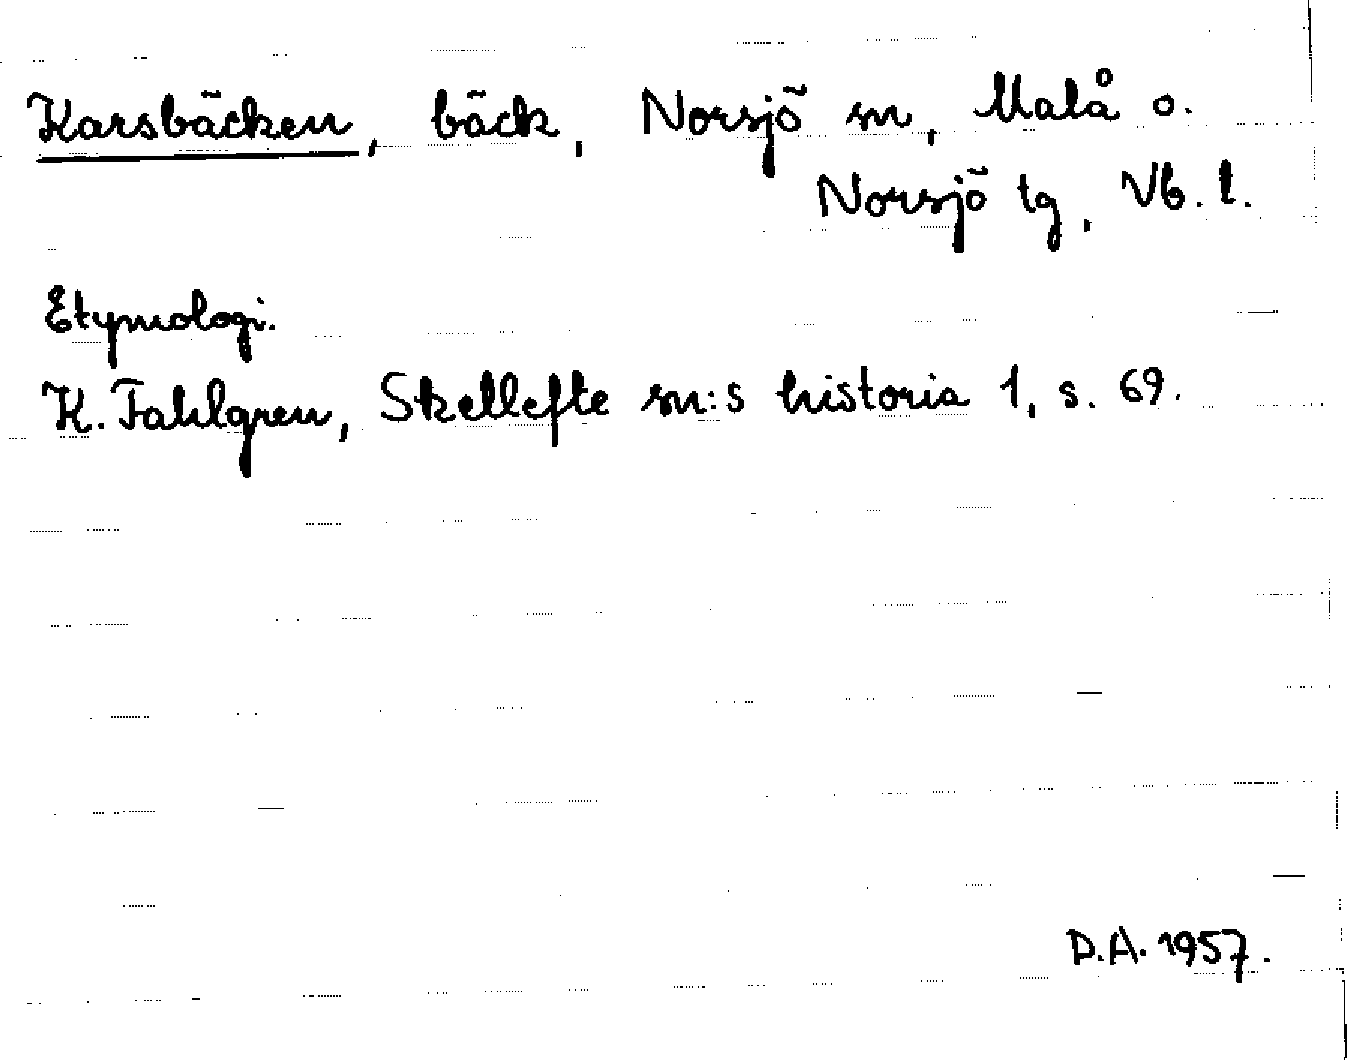 Karsbäcken, bäck, Norsjö sn, Malå o.
Norsjö tg, Vb. l.
Etymologi.
K. Fahlgren, Skellefte sn:s historia 1, s. 69.
D.A. 1957.